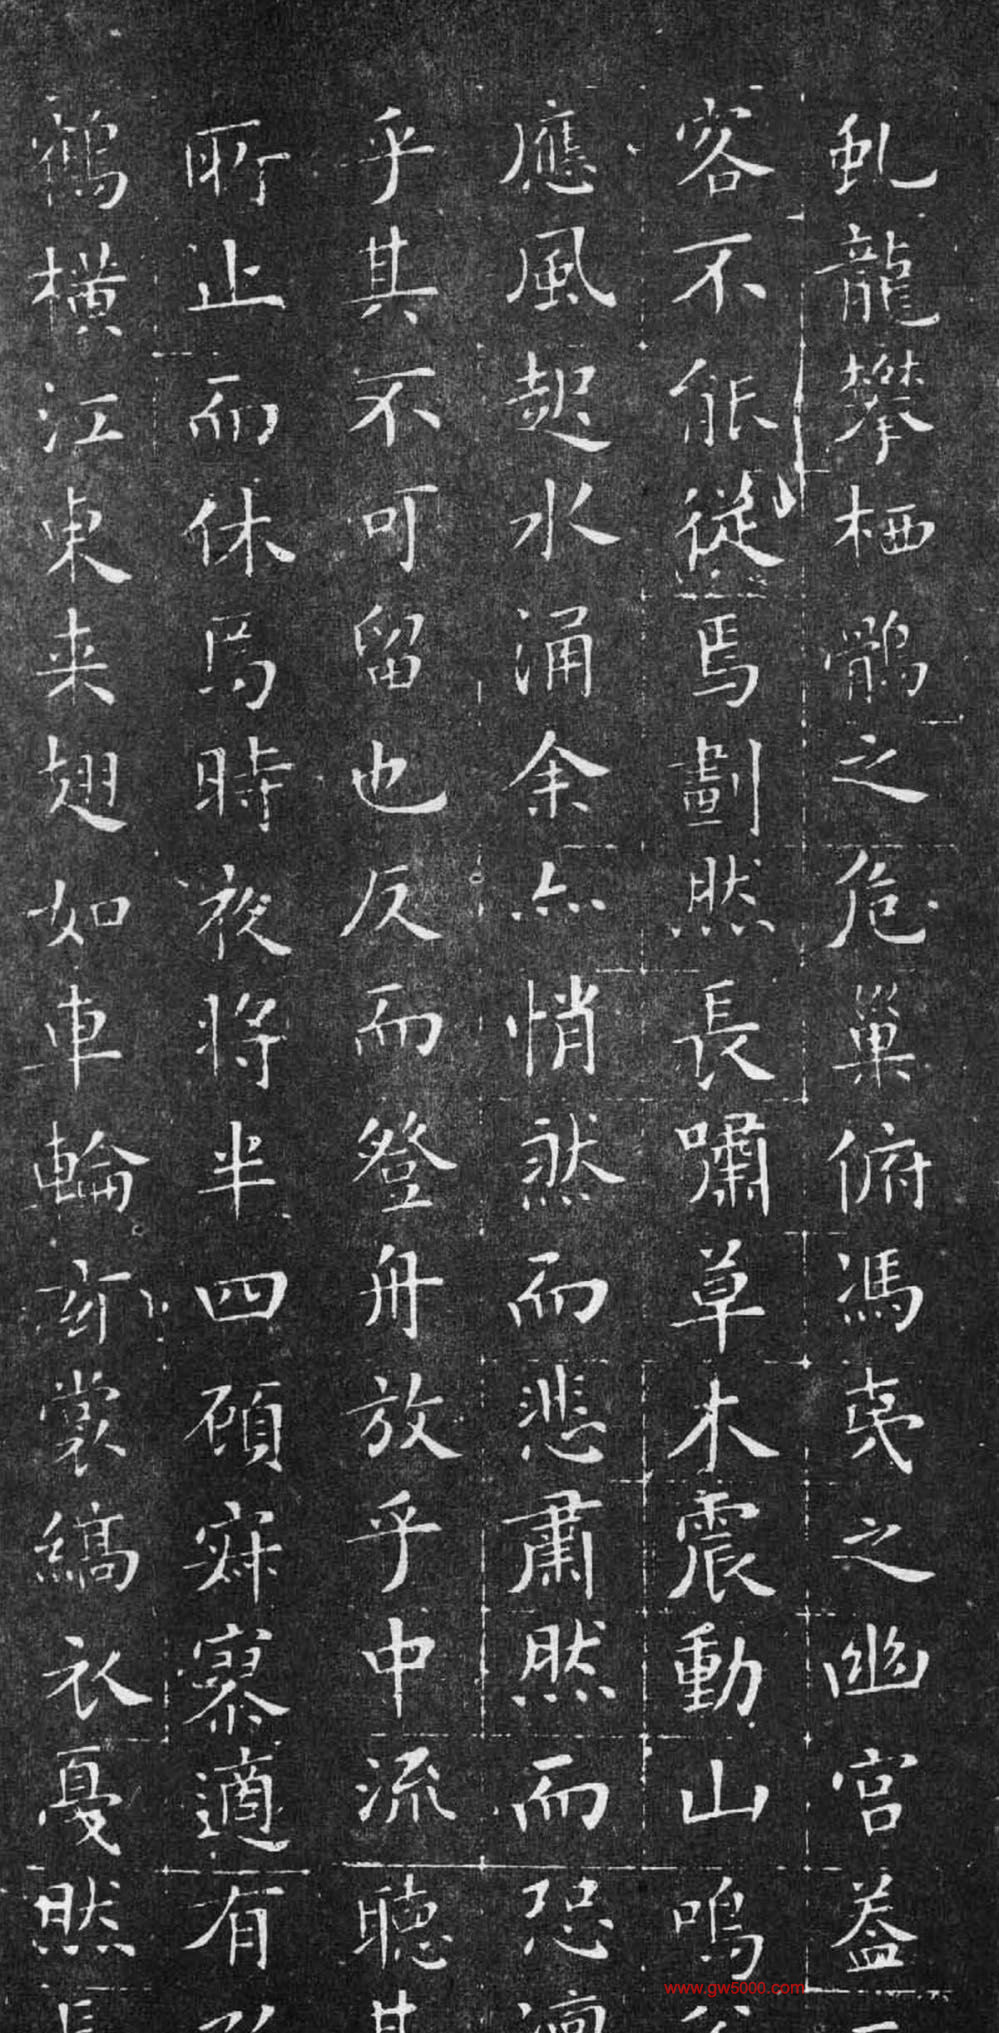 虬龍攀栖鶻之危巢俯馮夷之幽宮蓋
客不能從焉劃然長嘯草木震動山鳴
應風起水涌余亦悄然而悲肅然而恐
乎其不可留也反而登舟放乎中流聽其
所止而休焉時夜將半四顧寂寥適有
鶴橫江東来翅如車輪玄裳縞衣戛然
www.gw5000.com